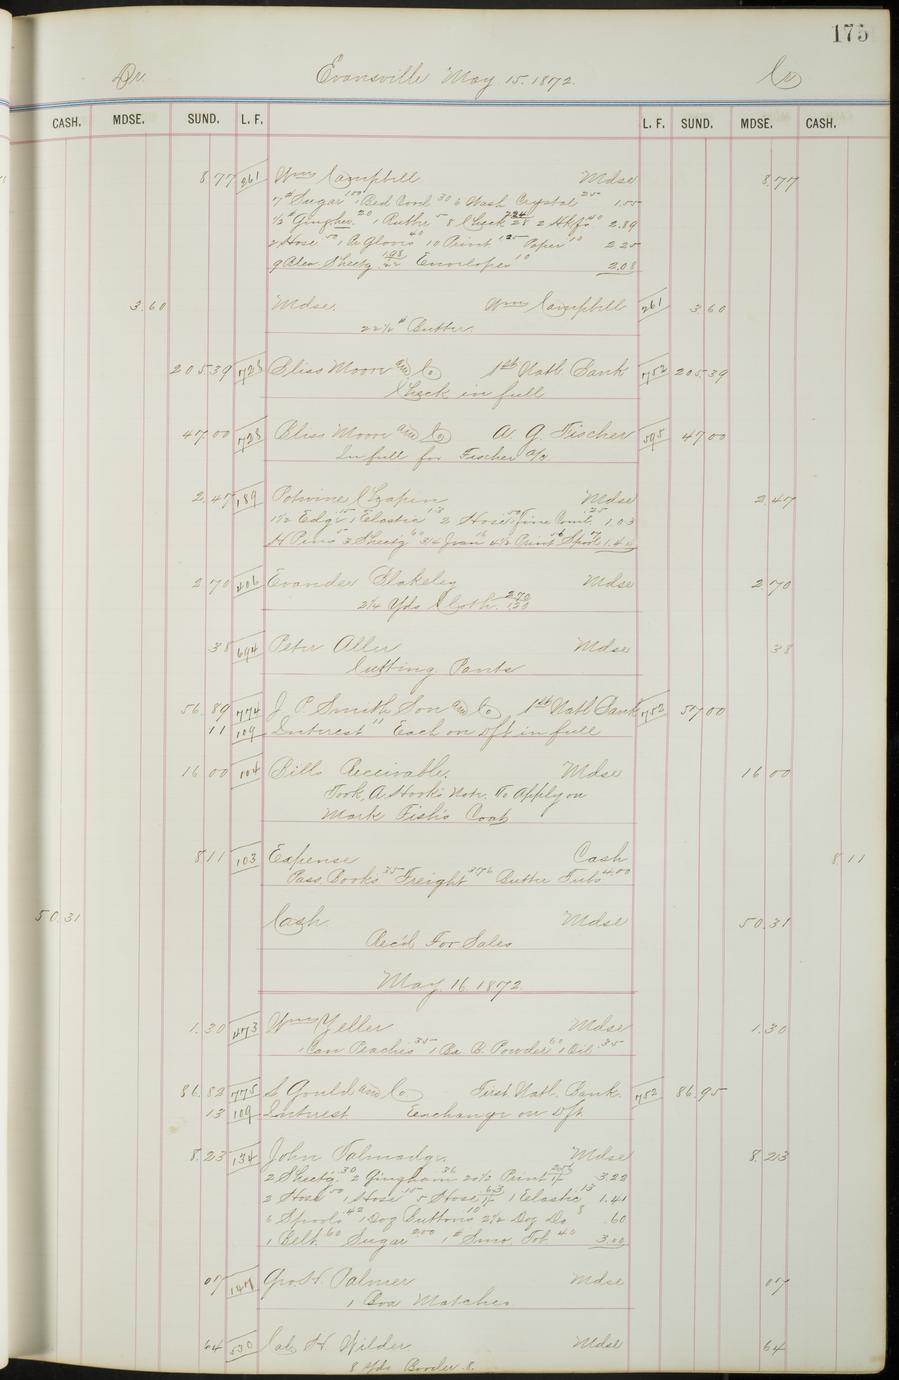 175
Dr. Evansville May 15. 1872. Cr
CASH. MDSE. SUND. L. F. L. F. SUND. MDSE. CASH.
8.77 261 Wm Campbell Mdse 8.77
7# Sugar 100 1 Bed Cord 30 6 Wash Crystal 25 1.55
1/2 # Gingher 20 1 Ruche 5 8 Check 28 2 Hkfs 40 2.89
2 Hose 50 1 Pr Gloves 40 10 Print 125 Paper 10 2 25
9 Blea. Sheetg 198 22 Envelopes 10 2.08
3.60 Mdse. Wm Campbell 261 3 60
22 1/2 # Butter.
205.39 723 Bliss Moore and Co 1st Natl. Bank 752 205.39
Check in full
47.00 723 Bliss Moore and Co A. G. Fischer 595 47.00
In full for Fischer a/c
2.47 189 Potwine Mdse 2.47
1 1/2 Edg 15 1 Elastic 13 2 Hose 50 1 Fine Comb 25 1.03
H Pins 5 3 Sheetg 60 3/4 Jean 4 1/2 Print Spool 1.44
2 70 406 Evander Blakeley Mdse 2.70
2 1/4 Yds Cloth. 2.70 120
38 694 Peter Aller Mdse 38
Cutting Pants
56.89 774 J. P. Smith Son and Co 1st Natl Bank 752 57.00
11 109 Interest " Exch on Dft in full
16 00 104 Bills Receivable. Mdse 16 00
Took, A. Hooks Note. To Apply on
Mark Fish's Coat
8.11 103 Expense Cash 8 11
Pass. Books 35 Freight 376 Butter Tubs 4.00
50.31 Cash. Mdse 50.31
Rec'd For Sales
May. 16. 1872
1.30 473 Wm Yeller Mdse 1.30
1 Can Peaches 35 1 Bx. B. Powder 60 1 Oil .35
86.82 775 S Gould and Co. First Natl. Bank. 752 86.95
13 109 Interest. Exchange on Dft.
8.23 134 John Talmadge. Mdse 8.23
2 Sheetg. 30 2 Gingham 36 20 1/2 Print 256 3.22
2 Hose 50 1 Hose 15 5 Hose 63 1 Elastic 13 1.41
6 Spools 42 1 Doz Buttons 10 2 1/2 Doz Do 8 .60
1 Belt. 60 Sugar 200 1# Smo. Tob. 40 3.00
07 147 Geo. H. Palmer Mdse 07
1 Box Matches
64 530 Cal H. Wilder. Mdse 64
8 Yds Border. 8.